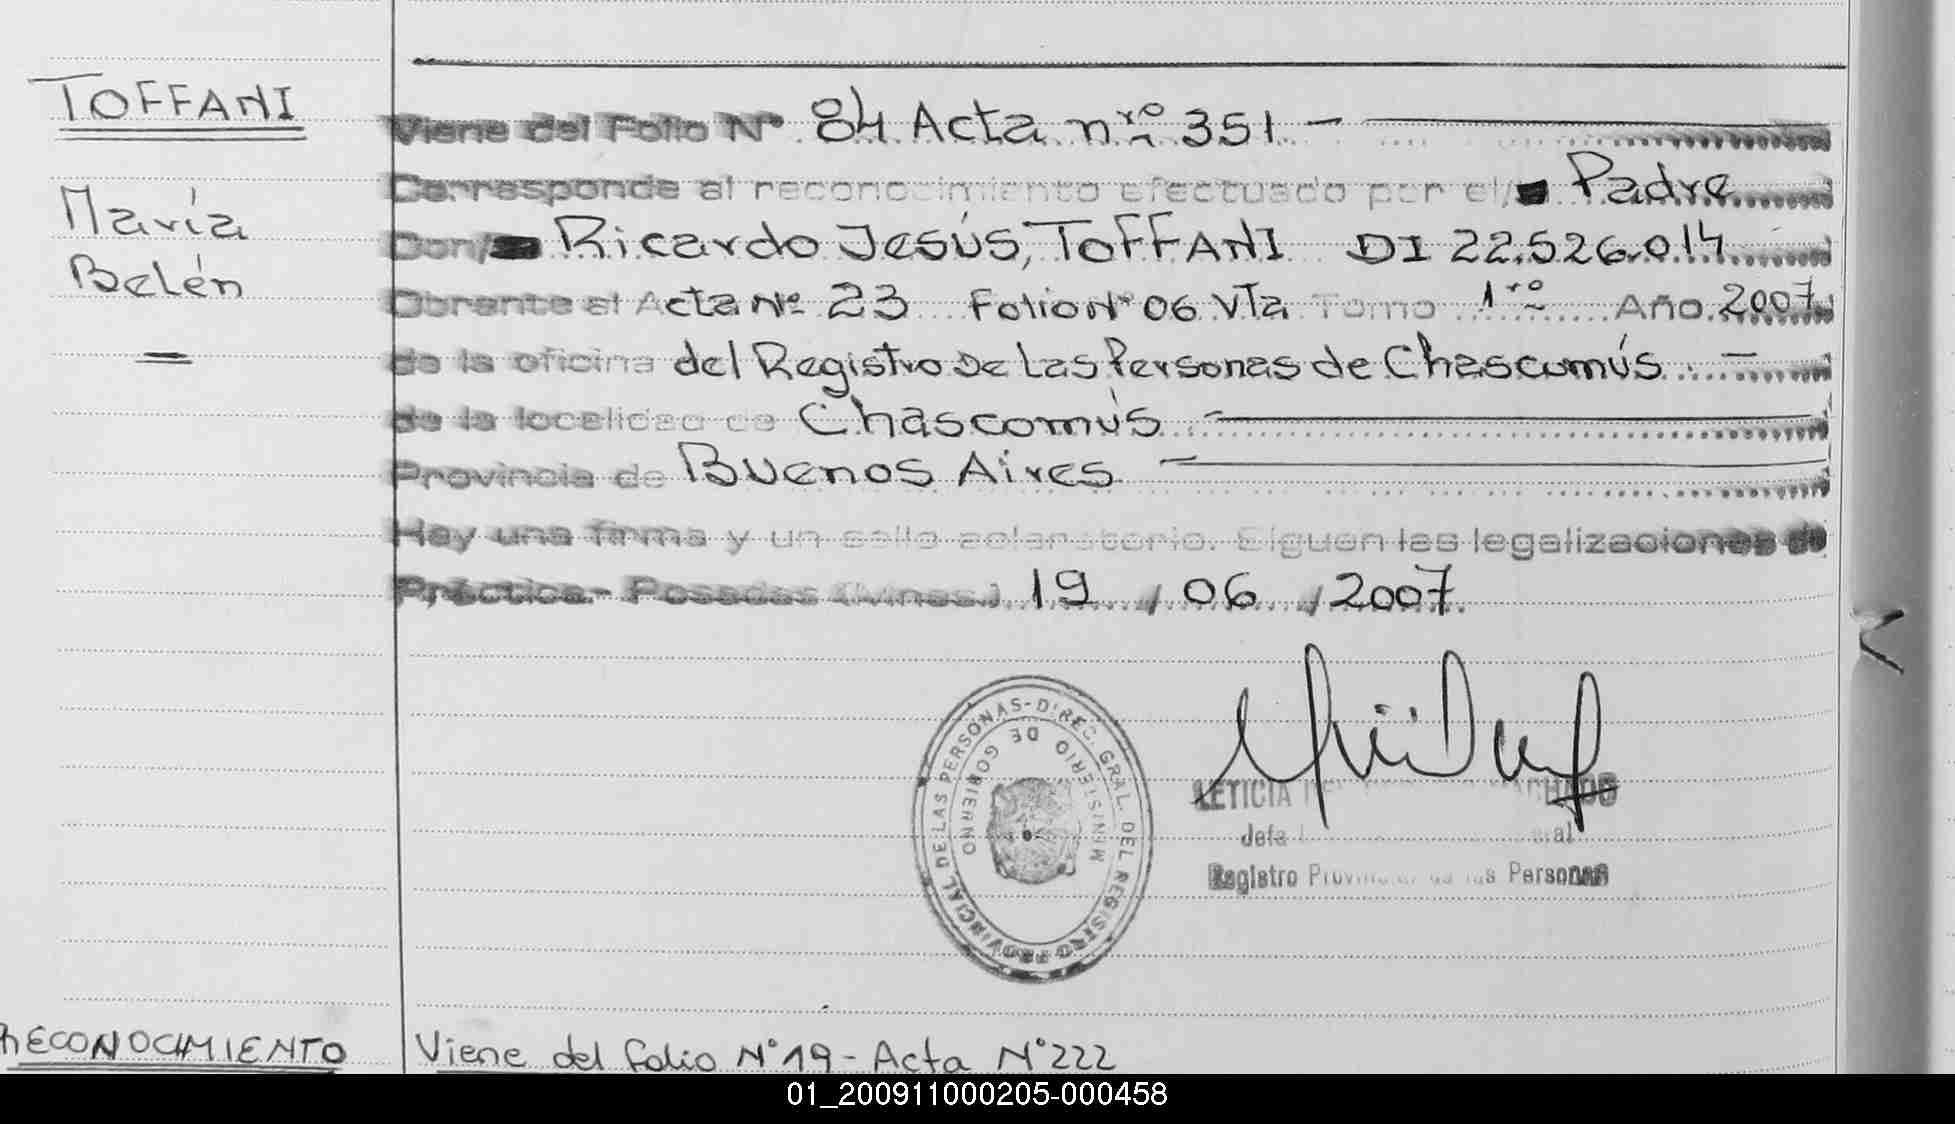 TOFFANI
María
Belén
Viene del Folio Nº 84 Acta nro 351 -
Corresponde al reconocimiento efectuado por el/ Padre
Don/ Ricardo Jesús, TOFFANI DI 22.526.014
Obrante al Acta Nº 23 Folio Nº 06 Vta Tomo 1ro Año 2007
de la oficina del Registro De Las Personas de Chascomús. -
de la localidad de Chascomús
Provincia de Buenos Aires
Hay una firma y un sello aclaratorio. Siguen las legalizaciones de
Práctica.- Posadas (Mnes.) 19 / 06 / 2007.
DIREC. GRAL. DEL REGISTRO PROVINCIAL DE LAS PERSONAS-
MINISTERIO DE GOBIERNO
LETICIA MACHADO
Jefa
Registro Provincial de las Personas
RECONOCIMIENTO
Viene del folio Nº 19 - Acta Nº 222
01_200911000205-000458